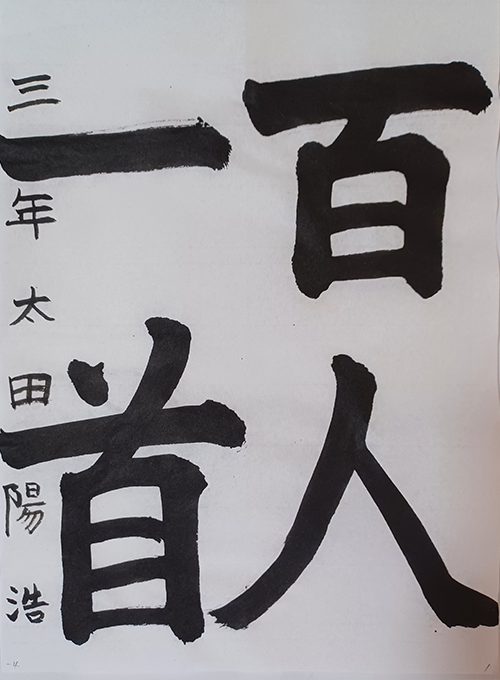 百人
一首
三年太田陽浩